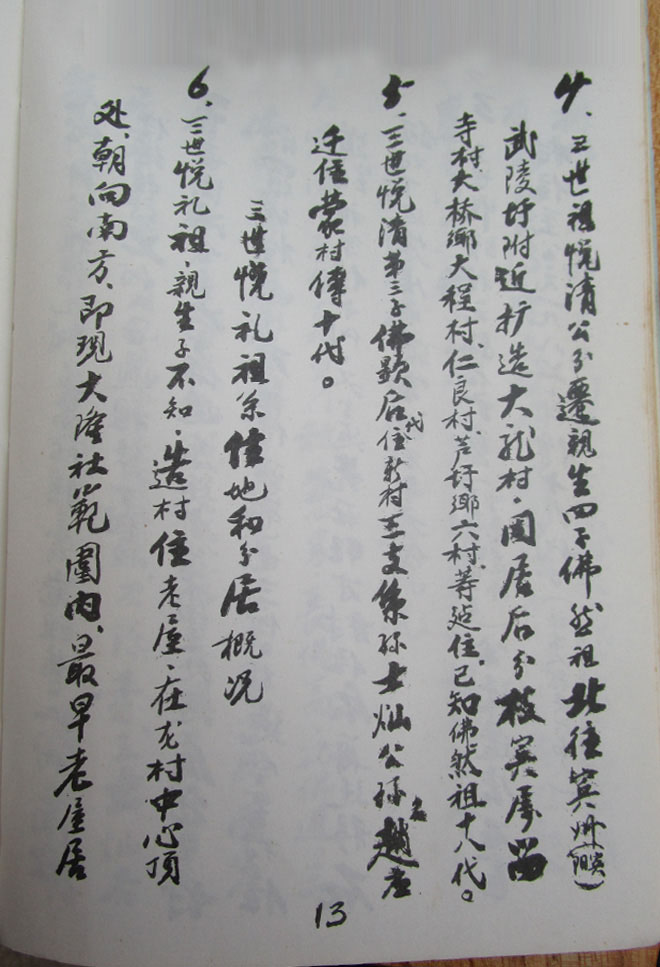 4、三世祖悦清公分遷親生四子佛然祖北往宾州（宾）
武陵圩附近扩造大龙村·闲居后分枝宾属
寺村大桥鄉大程村、仁良村、芦圩鄉六村、等处住、已知佛然祖十八代。
5、三世悦清第三子佛顕后代住新村三支系孙士灿公孙名趙
迁住蒙村傳十代。
三世悦礼祖系住地和分居概况
6、三世悦礼祖·親生子不知·造村住老屋·在龙村中心頂
处、朝向南方、即现大隆社範圍内、最早老屋居
13